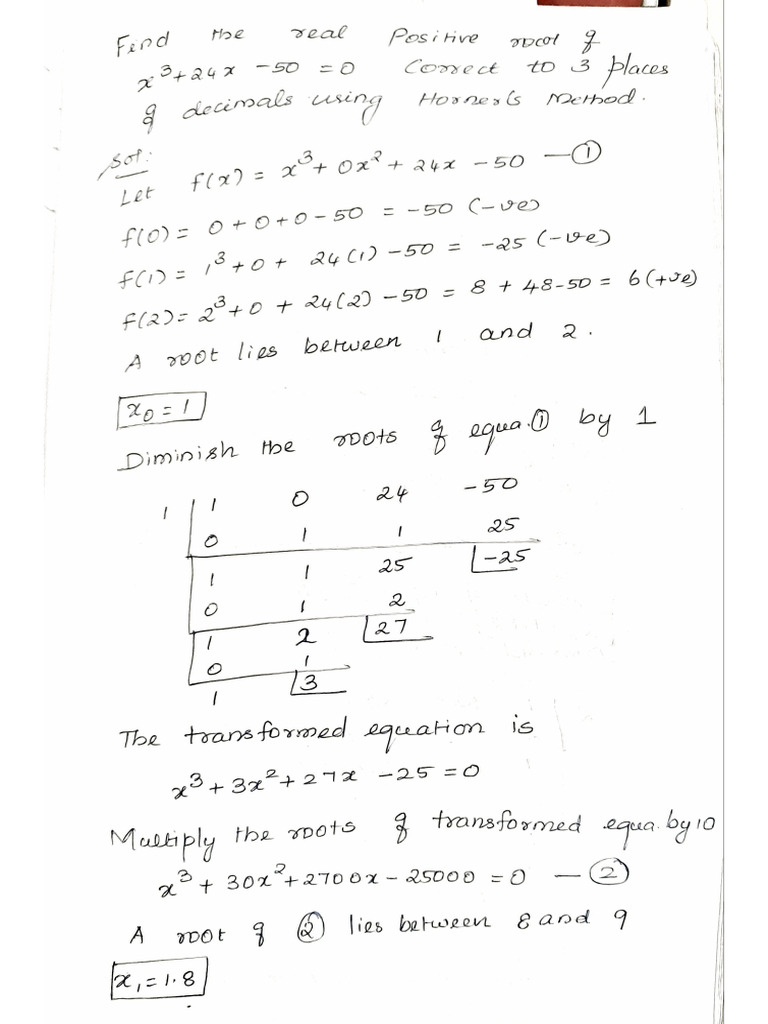 Find the real Positive root of
x³+24x -50 =0 Correct to 3 places
of decimals using Horner's Method.
Sol:
Let f(x) = x³+ 0x²+ 24x -50 —①
f(0)= 0+0+0-50 = -50 (-ve)
f(1)= 1³+0+ 24(1)-50 = -25 (-ve)
f(2)= 2³+0 + 24(2) -50 = 8 + 48-50 = 6(+ve)
A root lies between 1 and 2.
x₀=1
Diminish the roots of equa.① by 1
1 1 0 24 -50
0 1 1 25
1 1 25 -25
0 1 2
1 2 27
0 1
1 3
The transformed equation is
x³+3x²+27x -25 =0
Multiply the roots of transformed equa. by 10
x³+ 30x²+2700x - 25000 =0 —②
A root of ② lies between 8 and 9
x₁=1.8